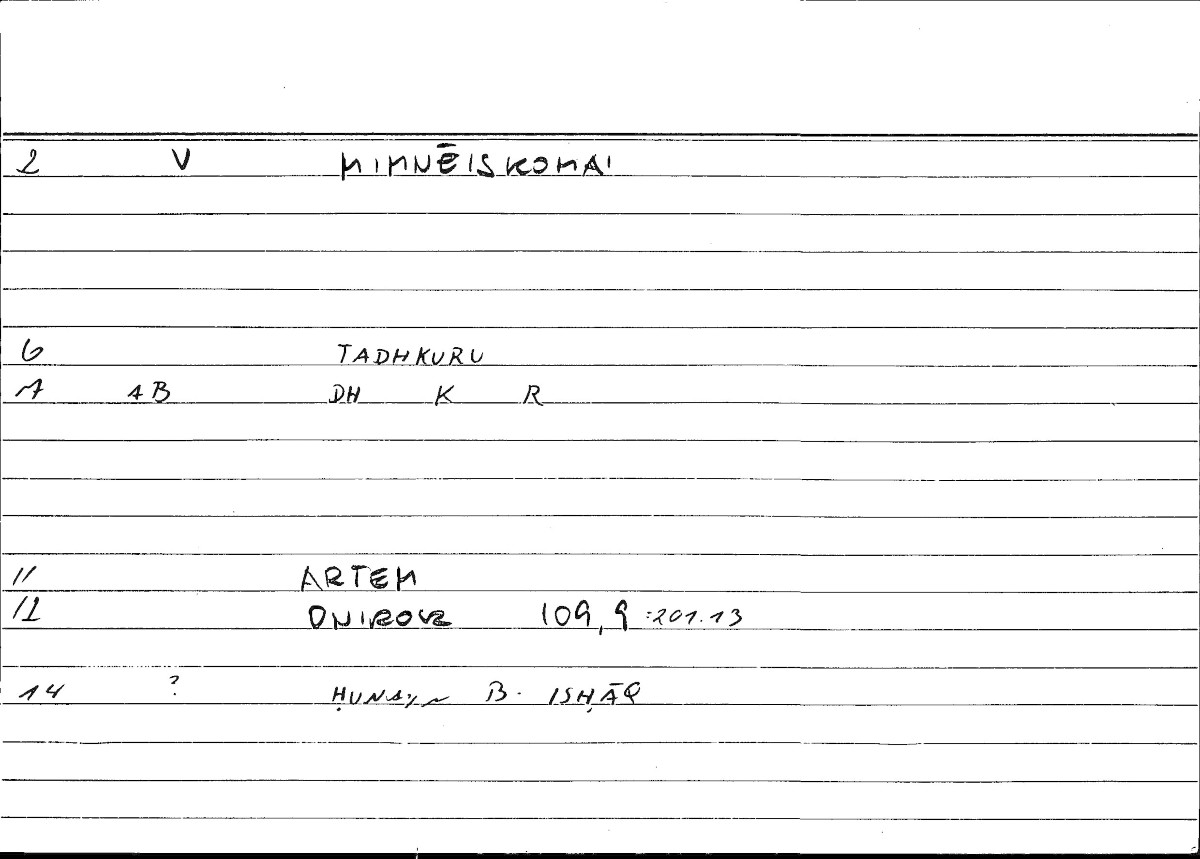 2 V MIMNĒISKOMAI
6 TADHKURU
7 AB DH K R
11 ARTEM
12 ONIROCR 109,9 :201.13
14 ? ḤUNAYN B. ISḤĀQ